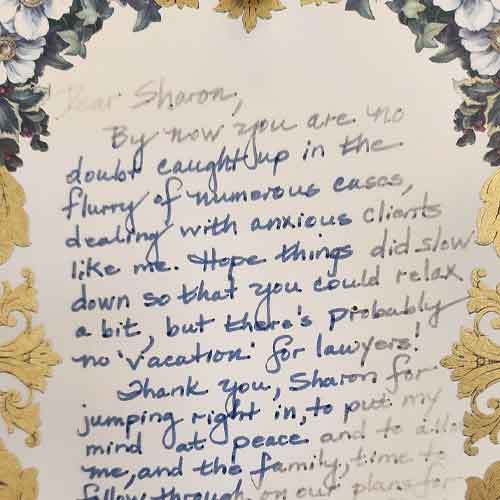 Dear Sharon,
By now you are no
doubt caught up in the
flurry of numerous cases,
dealing with anxious clients
like me. Hope things did slow
down so that you could relax
a bit, but there's probably
no 'vacation' for lawyers!
Thank you, Sharon for
jumping right in, to put my
mind at peace and to allow
me, and the family, time to
follow through on our plans for